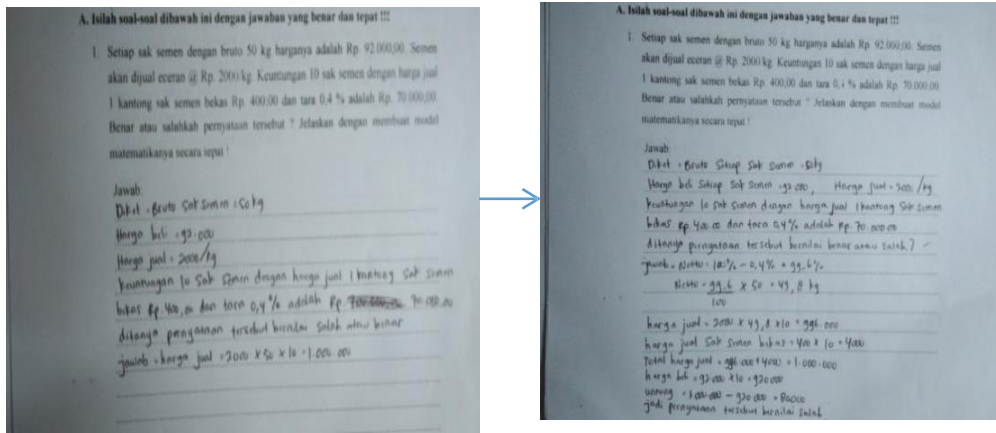 A. Isilah soal-soal dibawah ini dengan jawaban yang benar dan tepat !!!
1. Setiap sak semen dengan bruto 50 kg harganya adalah Rp. 92.000,00. Semen
akan dijual eceran @ Rp. 2000/kg. Keuntungan 10 sak semen dengan harga jual
1 kantong sak semen bekas Rp. 400,00 dan tara 0,4 % adalah Rp. 70.000,00.
Benar atau salahkah pernyataan tersebut ? Jelaskan dengan membuat model
matematikanya secara tepat !
Jawab:
Diket : Bruto Sak Semen : 50 kg
Harga beli : 92.000
Harga jual = 2000/kg
keuntungan 10 Sak Semen dengan harga jual 1 kantong Sak Semen
bekas Rp. 400,00 dan tara 0,4 % adalah Rp. 70.000.00
ditanya pernyataan tersebut bernilai salah atau benar
jawab = harga jual = 2000 x 50 x 10 = 1.000.000
A. Isilah soal-soal dibawah ini dengan jawaban yang benar dan tepat !!!
1. Setiap sak semen dengan bruto 50 kg harganya adalah Rp. 92.000,00. Semen
akan dijual eceran @ Rp. 2000/kg. Keuntungan 10 sak semen dengan harga jual
1 kantong sak semen bekas Rp. 400,00 dan tara 0,4 % adalah Rp. 70.000,00.
Benar atau salahkah pernyataan tersebut ? Jelaskan dengan membuat model
matematikanya secara tepat !
Jawab:
Diket : Bruto Setiap Sak Semen = 50kg
Harga beli Setiap Sak Semen = 92.000, Harga jual = 2000/kg
keuntungan 10 sak semen dengan harga jual 1 kantong Sak Semen
bekas Rp 400.00 dan tara 0,4 % adalah Rp. 70.000.00
ditanya pernyataan tersebut bernilai benar atau salah?
jawab = Netto = 100% - 0,4 % = 99,6 %
Netto = 99,6 x 50 = 49,8 kg
100
harga jual = 2000 x 49,8 x 10 = 996.000
harga jual Sak Semen bekas = 400 x 10 = 4000
Total harga jual = 996.000 + 4000 = 1.000.000
harga beli = 92.000 x 10 = 920.000
untung = 1.000.000 - 920.000 = 80.000
jadi pernyataan tersebut bernilai salah